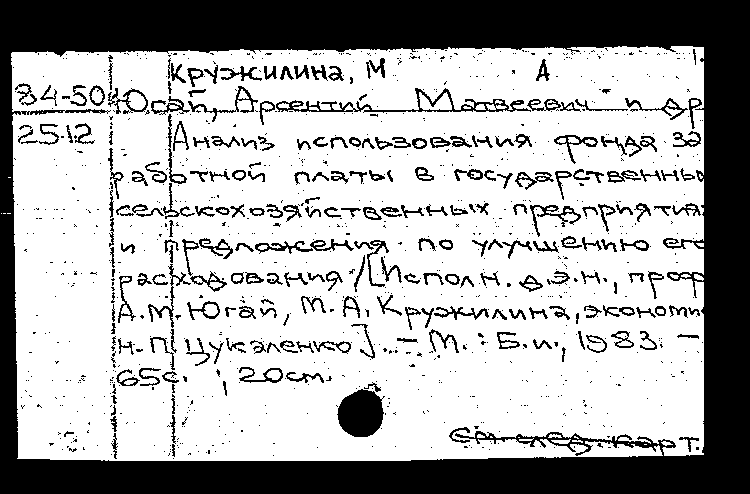 Кружилина, М А
84-504 Югай, Арсентий Матвеевич и др
25.12 Анализ использования фонда за
работной платы в государственны
сельскохозяйственных предприятия
и предложения по улучшению его
расходования /[Исполн. д.э.н., проф
А.М. Югай, М.А. Кружилина, экономи
Н.П Цукаленко]. – М. : Б.и., 1983. –
65с. ; 20см.
См след. карт.